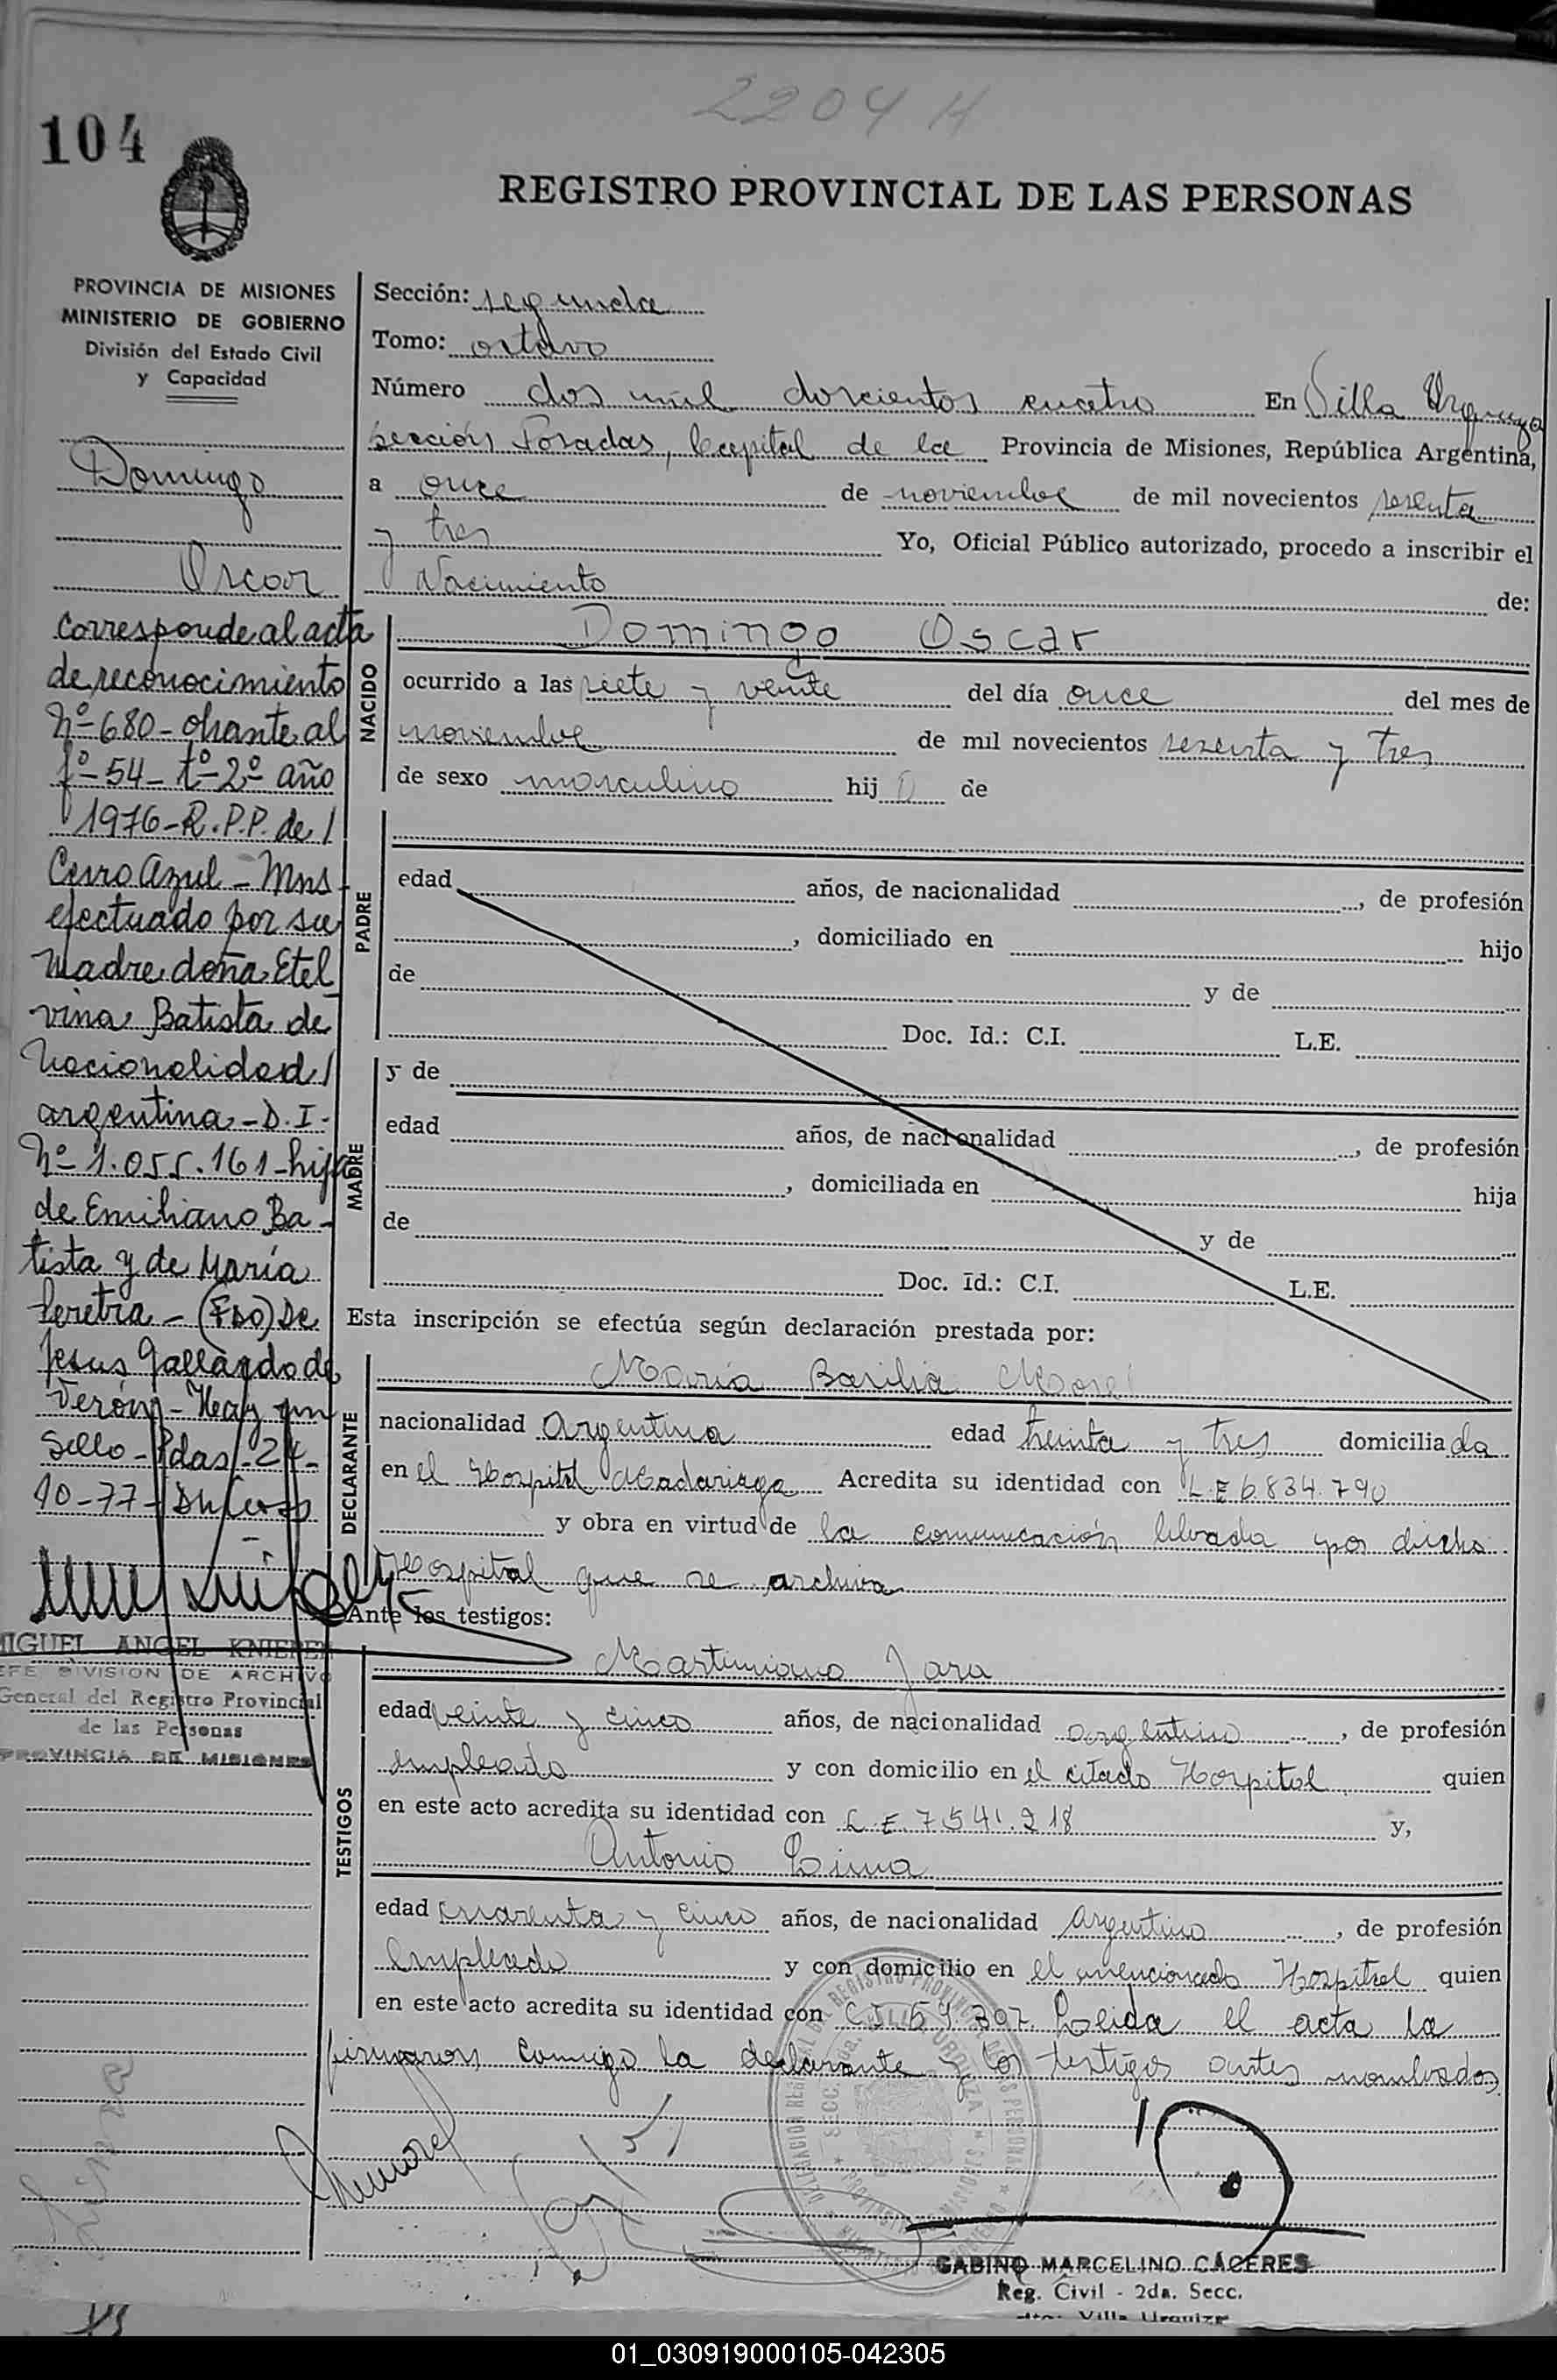 2204 H
104
REGISTRO PROVINCIAL DE LAS PERSONAS
PROVINCIA DE MISIONES
MINISTERIO DE GOBIERNO
División del Estado Civil
y Capacidad
Domingo
Oscar
Corresponde al acta
de reconocimiento
Nº 680- obrante al
fº- 54- tº- 2º año
1976- R.P.P. de /
Cerro Azul - Mns
efectuado por su
Madre doña Etel
vina Batista de
Nacionalidad /
argentina - D.I.
Nº 1.055.161- hija
de Emiliano Ba-
tista y de María
Pereira - (FDO) De
Jesus Gallardo de
Verón - Hay un
Sello - Pdas - 24-
10-77-
MIGUEL ANGEL KNIEREN
JEFE DIVISION DE ARCHIVO
General del Registro Provincial
de las Personas
PROVINCIA DE MISIONES
Sección: segunda
Tomo: octavo
Número dos mil doscientos cuatro En Villa Urquiza
sección Posadas, Capital de la Provincia de Misiones, República Argentina,
a once de noviembre de mil novecientos sesenta
y tres Yo, Oficial Público autorizado, procedo a inscribir el
Nacimiento de:
NACIDO
Domingo Oscar
ocurrido a las siete y veinte del día once del mes de
noviembre de mil novecientos sesenta y tres
de sexo masculino hijo de
PADRE
edad años, de nacionalidad , de profesión
, domiciliado en hijo
de y de
Doc. Id.: C.I. L.E.
MADRE
y de
edad años, de nacionalidad , de profesión
, domiciliada en hija
de y de
Doc. Id.: C.I. L.E.
Esta inscripción se efectúa según declaración prestada por:
DECLARANTE
María Basilia Morel
nacionalidad Argentina edad treinta y tres domiciliada
en el Hospital Madariaga Acredita su identidad con L.E 6.834.790
y obra en virtud de la comunicación librada por dicho
Hospital que se archiva
Ante los testigos:
TESTIGOS
Martiniano Jara
edad veinte y cinco años, de nacionalidad argentino , de profesión
empleado y con domicilio en el citado Hospital quien
en este acto acredita su identidad con L.E. 7.541.218 y,
Antonio Lima
edad cuarenta y cinco años, de nacionalidad Argentino , de profesión
Empleado y con domicilio en el mencionado Hospital quien
en este acto acredita su identidad con C.I. 54.307. Leida el acta la
firmaron conmigo la declarante y los testigos antes nombrados
GABINO MARCELINO CÁCERES
Reg. Civil - 2da. Secc.
Villa Urquiza
01_030919000105-042305